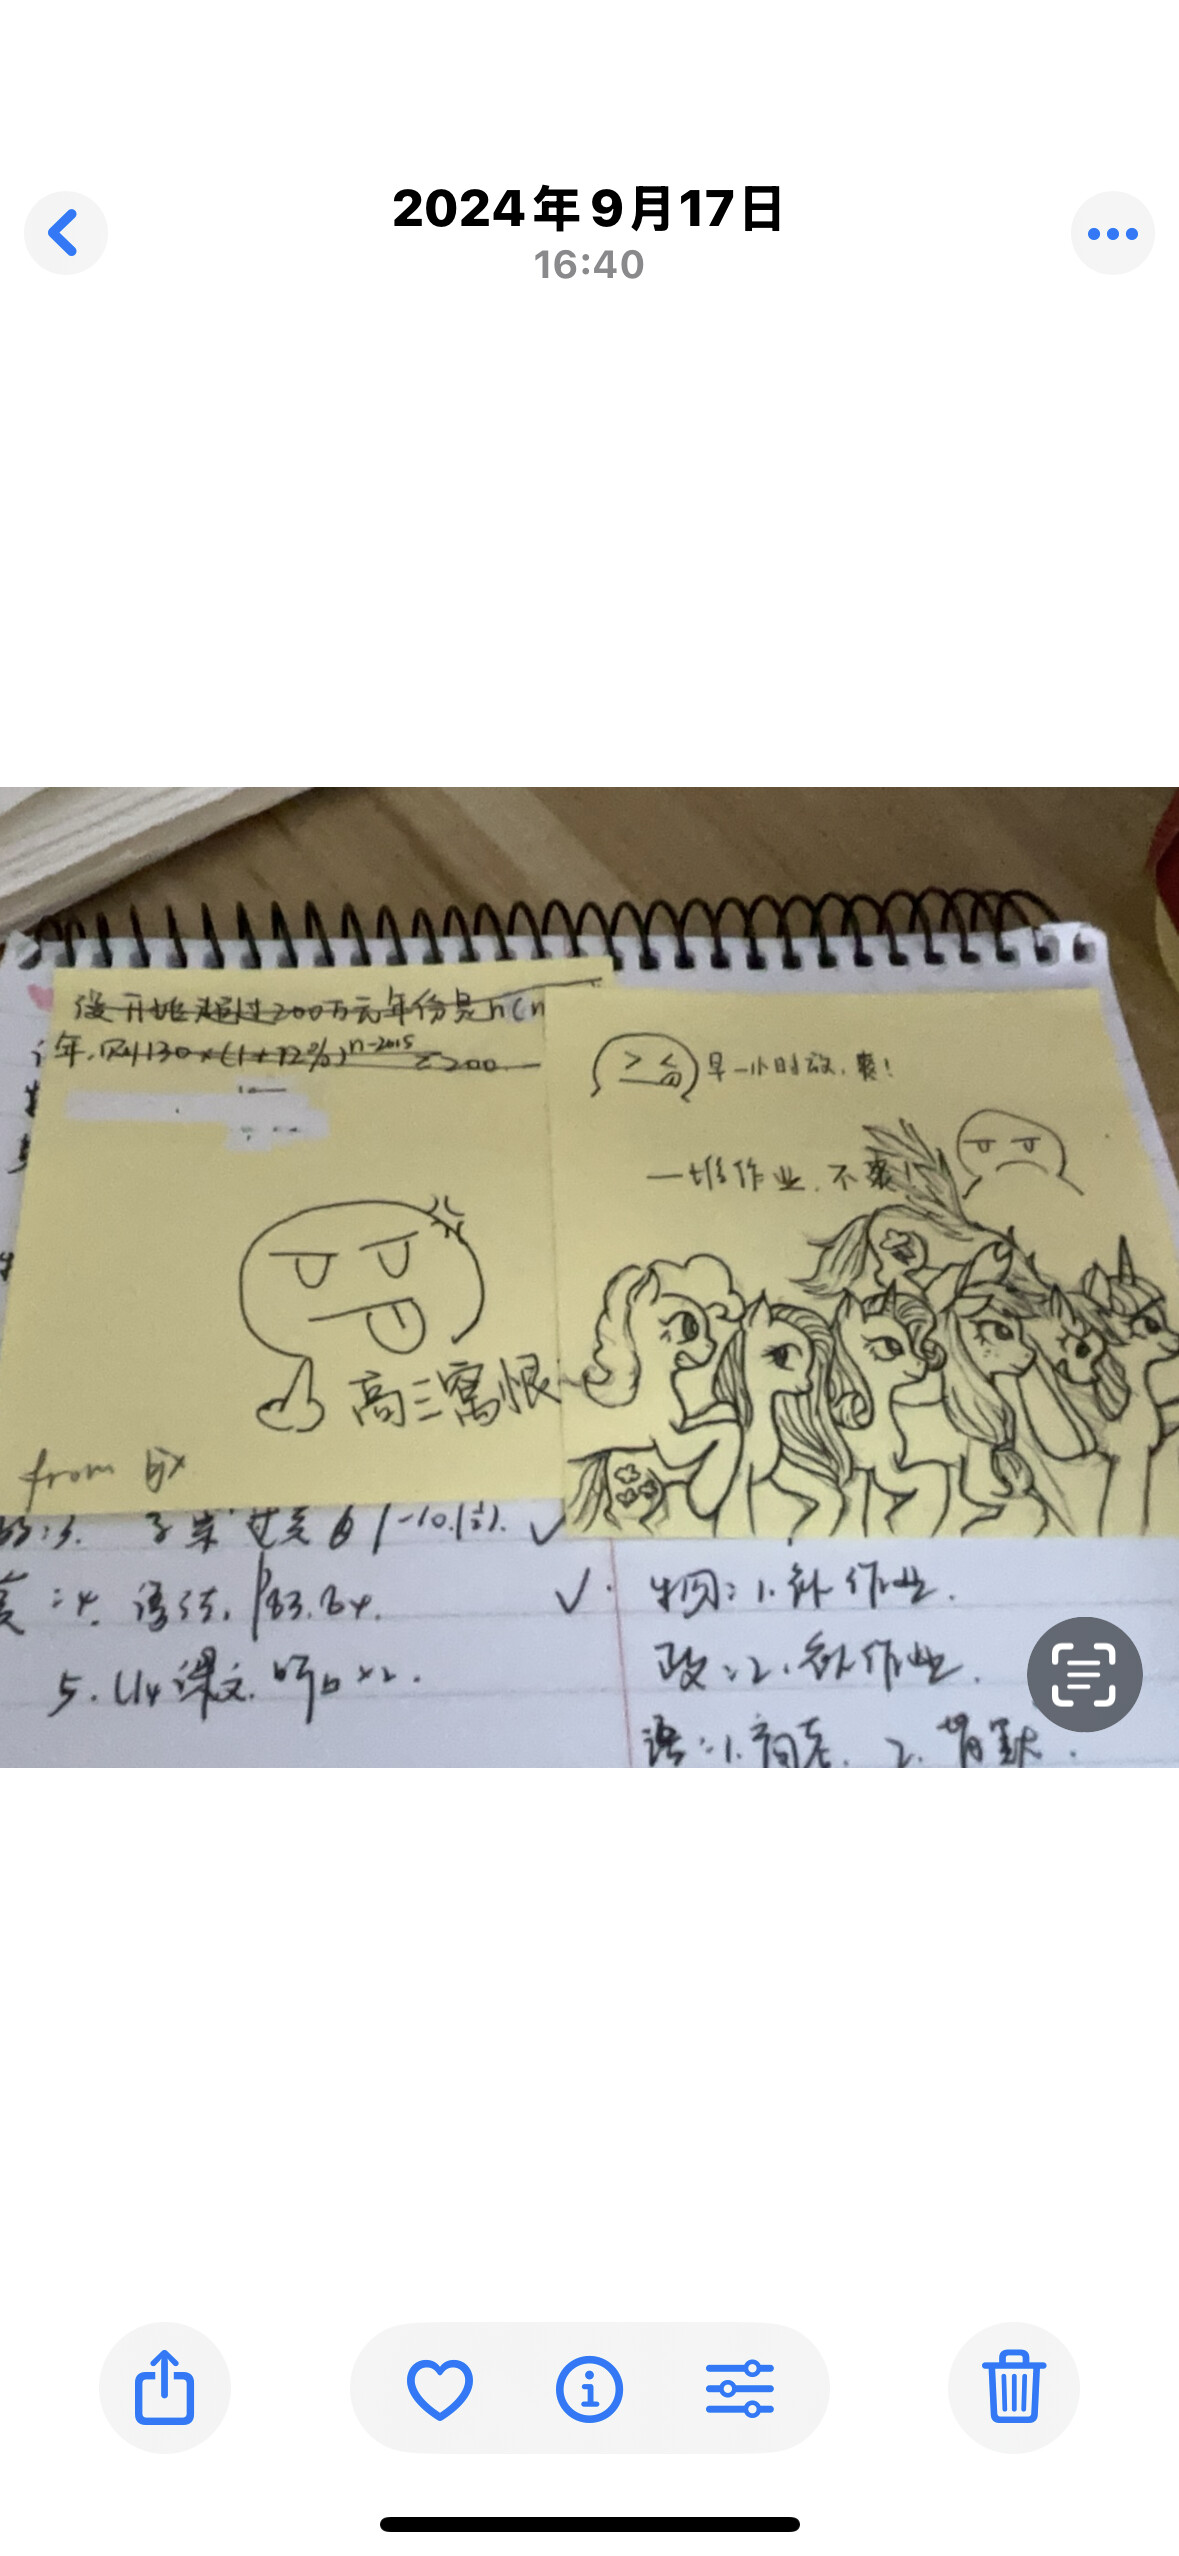 2024年9月17日
16:40
设开始超过200万元年份是n(n
年,则130×(1+12%)^n-2015≥200
高三寓恨
from
早一小时放,爽!
一堆作业,不爽!
语法,P83.84.
5. U4课文
物:1.补作业.
政:2.补作业.
语:1.
2.